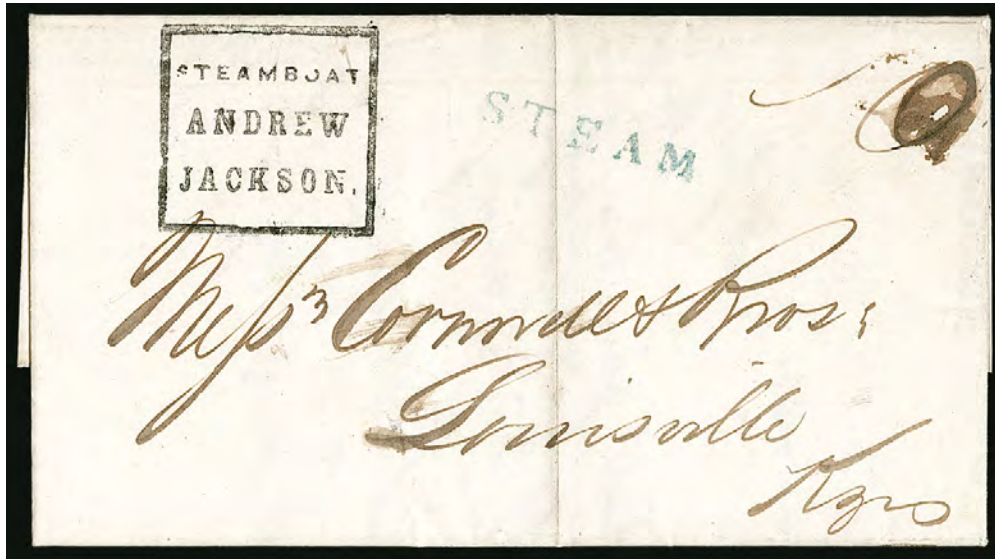 STEAMBOAT
ANDREW
JACKSON.
STEAM
Mess Cornwall & Bros
Louisville